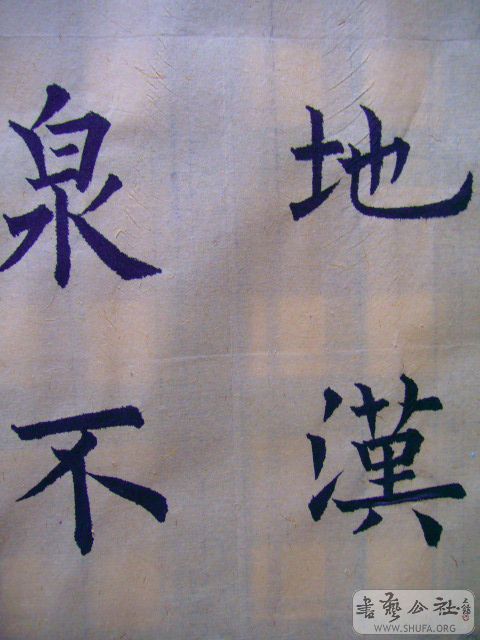 地漢
泉不
書藝公社
WWW.SHUFA.ORG